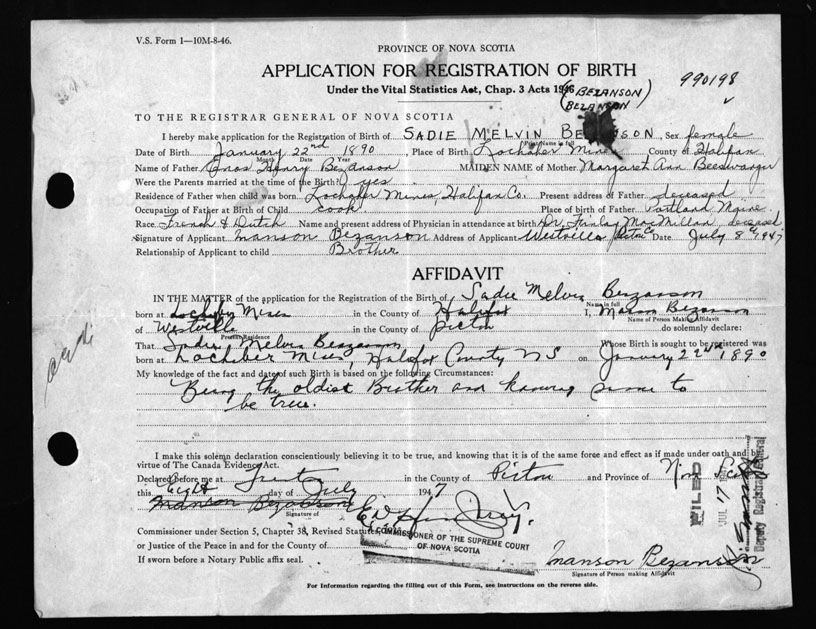 V.S. Form 1—10M-8-46.
PROVINCE OF NOVA SCOTIA
APPLICATION FOR REGISTRATION OF BIRTH
990198
Under the Vital Statistics Act, Chap. 3 Acts 1946
(BEZANSON)
BEZANSON
TO THE REGISTRAR GENERAL OF NOVA SCOTIA
I hereby make application for the Registration of Birth of SADIE MELVIN BEZANSON, Sex female
Print Name in full
Date of Birth January 22nd 1890, Place of Birth Lochaber Mines County of Halifax
Month Date Year
Name of Father Enos Henry Bezanson MAIDEN NAME of Mother Margaret Ann Beeswanger
Were the Parents married at the time of the Birth? yes
Residence of Father when child was born Lochaber Mines, Halifax Co. Present address of Father deceased
Occupation of Father at Birth of Child cook Place of birth of Father Portland Maine
Race French & Dutch Name and present address of Physician in attendance at birth Dr. Finlay MacMillan, deceased
Signature of Applicant Manson Bezanson Address of Applicant Westville Pictou Co Date July 8th 1947
Relationship of Applicant to child Brother
AFFIDAVIT
IN THE MATTER of the application for the Registration of the Birth of Sadie Melvin Bezanson
Name in full
born at Lochaber Mines in the County of Halifax I, Manson Bezanson
Name of Person Making Affidavit
of Westville in the County of Pictou do solemnly declare:
Present Residence
That Sadie Melvin Bezanson Whose Birth is sought to be registered was
born at Lochaber Mines, Halifax County NS on January 22nd 1890
My knowledge of the fact and date of such Birth is based on the following Circumstances:
Being the oldest Brother and knowing same to
be true.
I make this solemn declaration conscientiously believing it to be true, and knowing that it is of the same force and effect as if made under oath and by
virtue of The Canada Evidence Act.
Declared before me at Trenton in the County of Pictou and Province of Nova Scotia
this Eight day of July 1947
Manson Bezanson
Signature of
Commissioner under Section 5, Chapter 38, Revised Statutes,
A COMMISSIONER OF THE SUPREME COURT
OF NOVA SCOTIA
or Justice of the Peace in and for the County of
If sworn before a Notary Public affix seal.
Manson Bezanson
Signature of Person making Affidavit
FILED
JUL 17
Deputy Registrar General
For Information regarding the filling out of this Form, see instructions on the reverse side.